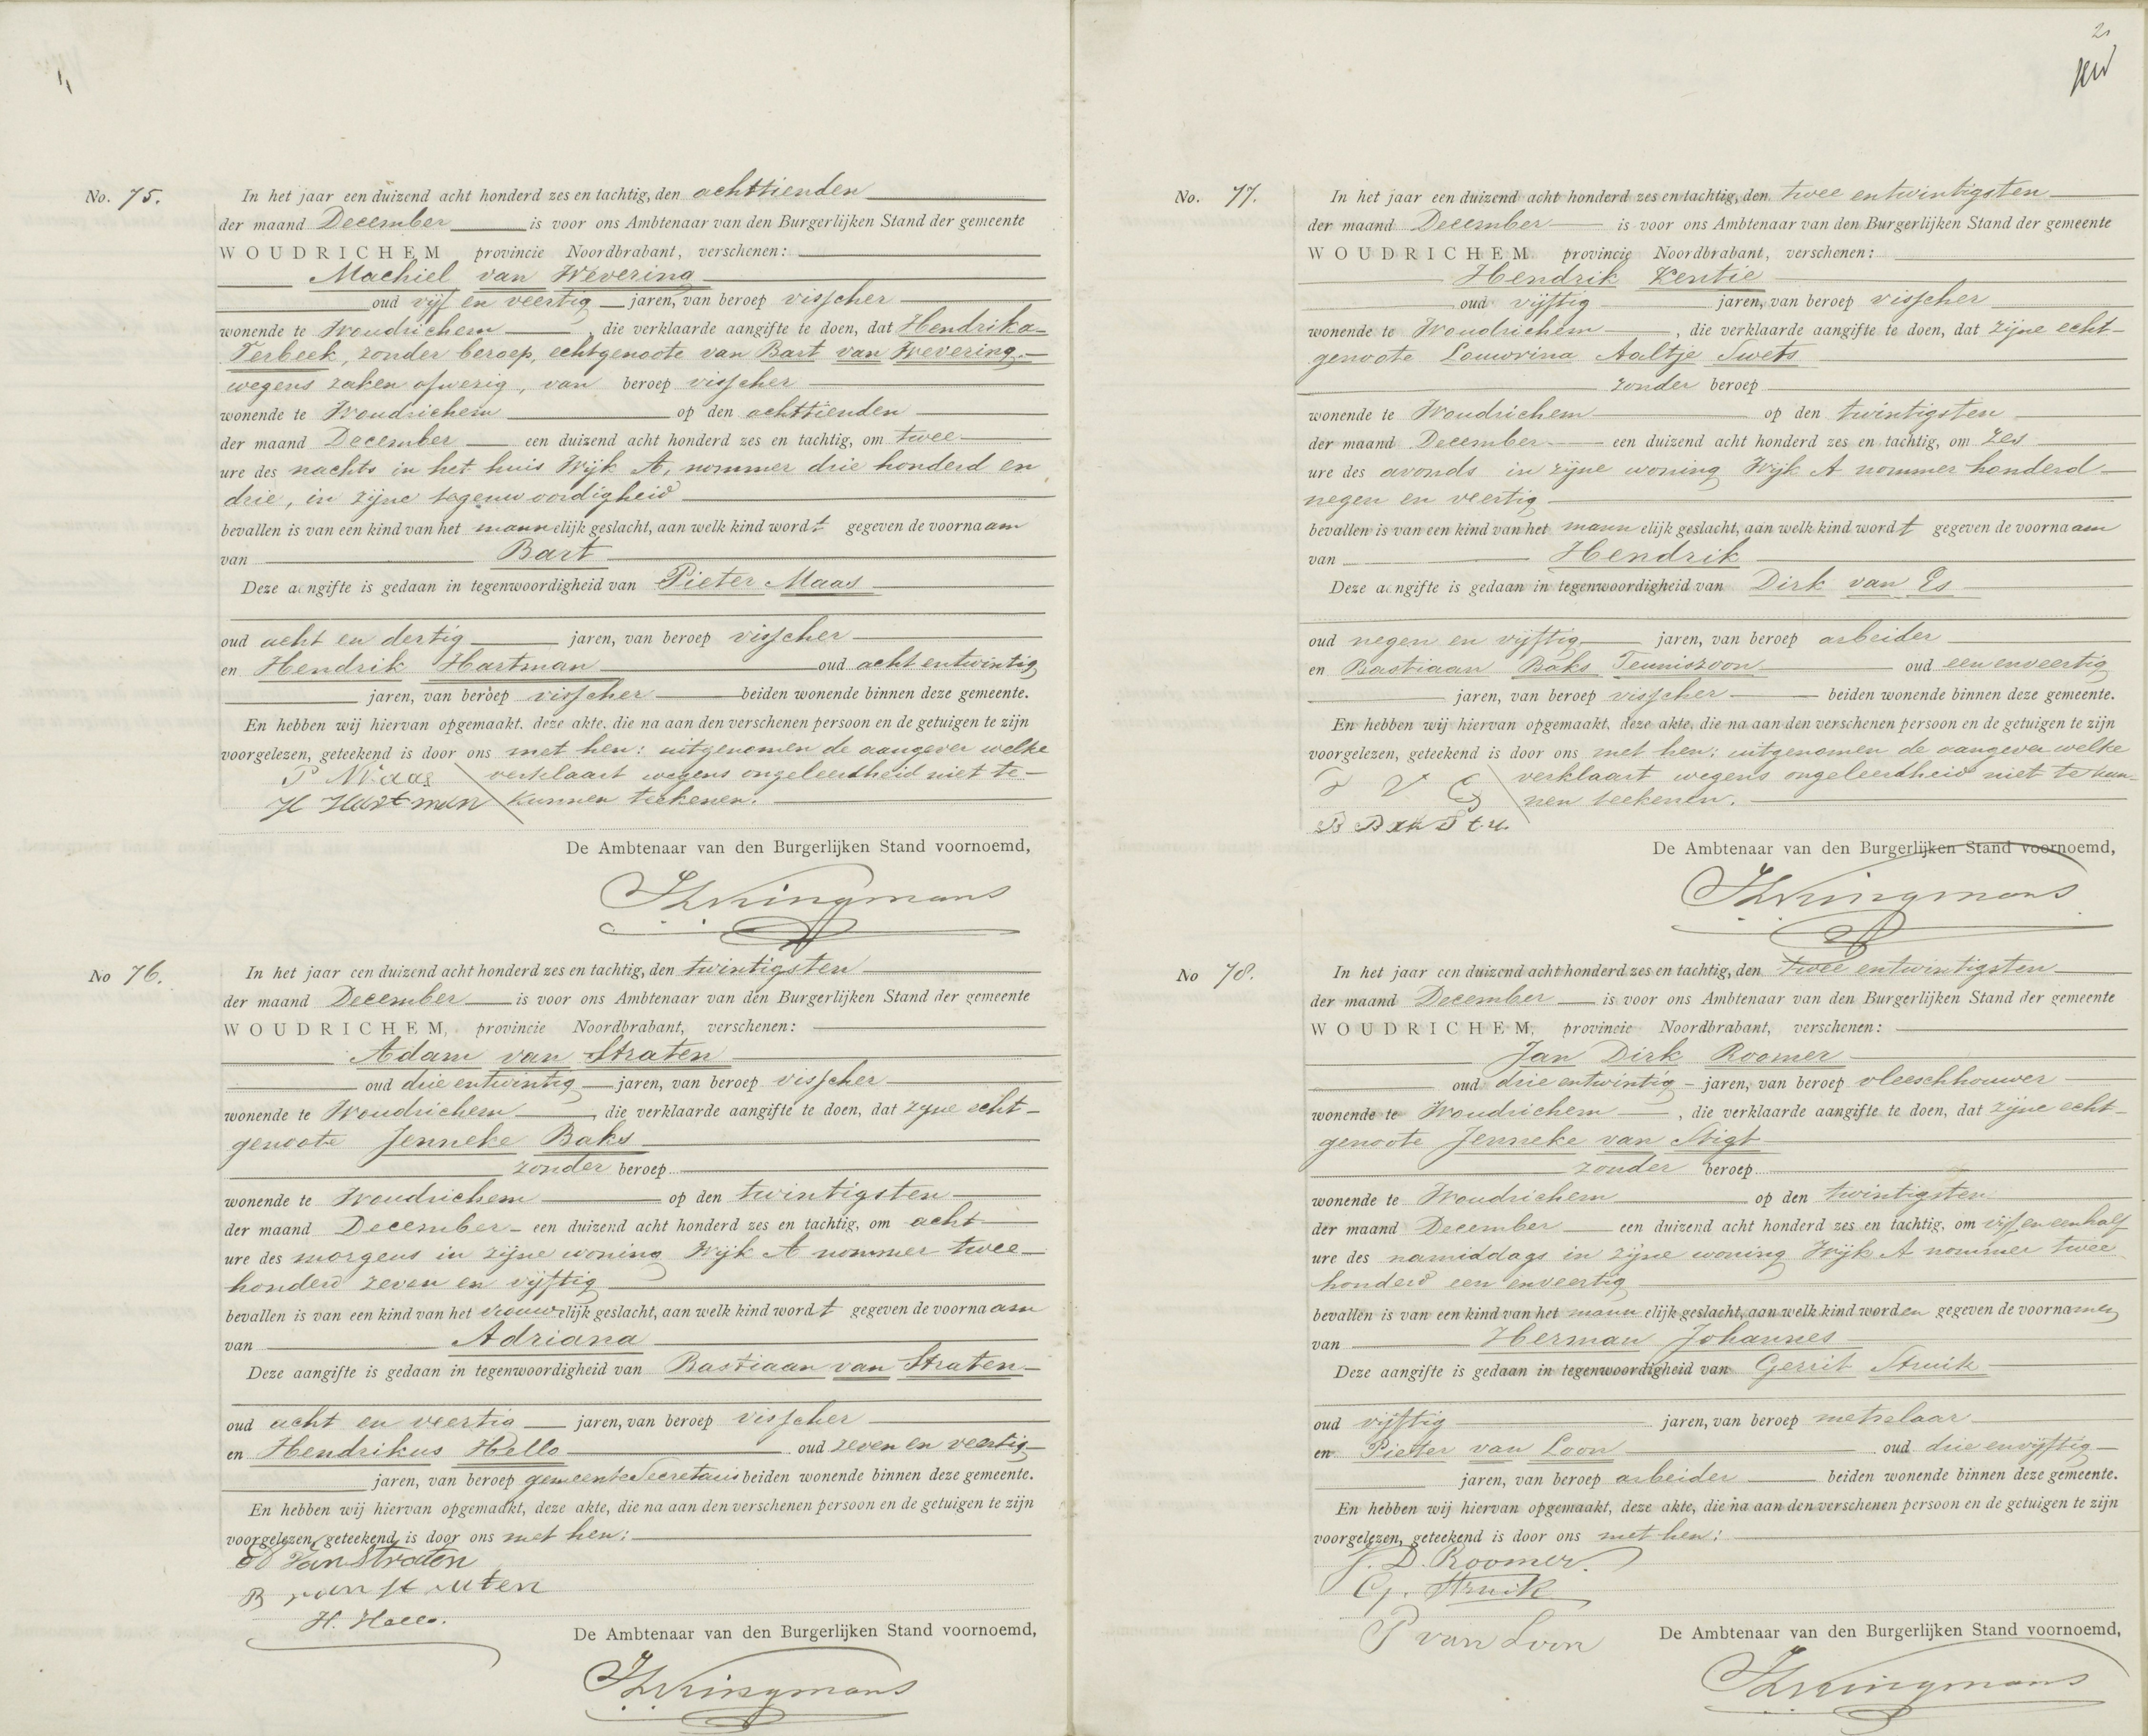 No. 75.
In het jaar een duizend acht honderd zes en tachtig, den achttienden
der maand December is voor ons Ambtenaar van den Burgerlijken Stand der gemeente
WOUDRICHEM provincie Noordbrabant, verschenen:
Machiel van Wevering
oud vijf en veertig jaren, van beroep visscher
wonende te Woudrichem, die verklaarde aangifte te doen, dat Hendrika
Terbeek, zonder beroep, echtgenoote van Bart van Wevering
wegens zaken afwezig, van beroep visscher
wonende te Woudrichem op den achttienden
der maand December een duizend acht honderd zes en tachtig, om twee
ure des nachts in het huis Wijk A, nommer drie honderd en
drie, in zijne tegenwoordigheid
bevallen is van een kind van het mannelijk geslacht, aan welk kind wordt gegeven de voornaam
van Bart
Deze aangifte is gedaan in tegenwoordigheid van Pieter Maas
oud acht en dertig jaren, van beroep visscher
en Hendrik Hartman oud acht entwintig
jaren, van beroep visscher beiden wonende binnen deze gemeente.
En hebben wij hiervan opgemaakt, deze akte, die na aan den verschenen persoon en de getuigen te zijn
voorgelezen, geteekend is door ons met hen: uitgenomen de aangever welke
verklaart wegens ongeleerdheid niet te
kunnen teekenen.
P Maas
H Hartman
De Ambtenaar van den Burgerlijken Stand voornoemd,
Kringmans
No 76.
In het jaar een duizend acht honderd zes en tachtig, den twintigsten
der maand December is voor ons Ambtenaar van den Burgerlijken Stand der gemeente
WOUDRICHEM, provincie Noordbrabant, verschenen:
Adam van Straten
oud drie entwintig jaren, van beroep visscher
wonende te Woudrichem, die verklaarde aangifte te doen, dat zijne echt-
genoote Jenneke Baks
zonder beroep
wonende te Woudrichem op den twintigsten
der maand December een duizend acht honderd zes en tachtig, om acht
ure des morgens in zijne woning Wijk A nommer twee
honderd zeven en vijftig
bevallen is van een kind van het vrouwelijk geslacht, aan welk kind wordt gegeven de voornaam
van Adriana
Deze aangifte is gedaan in tegenwoordigheid van Bastiaan van Straten
oud acht en veertig jaren, van beroep visscher
en Hendrikus Hello oud zeven en veertig
jaren, van beroep gemeente Secretaris beiden wonende binnen deze gemeente.
En hebben wij hiervan opgemaakt, deze akte, die na aan den verschenen persoon en de getuigen te zijn
voorgelezen, geteekend is door ons met hen:
van Straten
B van straten
H. Hello.
De Ambtenaar van den Burgerlijken Stand voornoemd,
Kringmans
No. 77.
In het jaar een duizend acht honderd zes en tachtig, den twee entwintigsten
der maand December is voor ons Ambtenaar van den Burgerlijken Stand der gemeente
WOUDRICHEM. provincie Noordbrabant, verschenen:
Hendrik Kentie
oud vijftig jaren, van beroep visscher
wonende te Woudrichem, die verklaarde aangifte te doen, dat zijne echt-
genoote Louwrina Aaltje Swets
zonder beroep
wonende te Woudrichem op den twintigsten
der maand December een duizend acht honderd zes en tachtig, om zes
ure des avonds in zijne woning Wijk A nommer honderd
negen en veertig
bevallen is van een kind van het mannelijk geslacht, aan welk kind wordt gegeven de voornaam
van Hendrik
Deze aangifte is gedaan in tegenwoordigheid van Dirk van Es
oud negen en vijftig jaren, van beroep arbeider
en Bastiaan Baks Teuniszoon oud een enveertig
jaren, van beroep visscher beiden wonende binnen deze gemeente.
En hebben wij hiervan opgemaakt, deze akte, die na aan den verschenen persoon en de getuigen te zijn
voorgelezen, geteekend is door ons met hen: uitgenomen de aangever welke
verklaart wegens ongeleerdheid niet te kun-
nen teekenen.
De Ambtenaar van den Burgerlijken Stand voornoemd,
Kringmans
No 78.
In het jaar een duizend acht honderd zes en tachtig, den twee entwintigsten
der maand December is voor ons Ambtenaar van den Burgerlijken Stand der gemeente
WOUDRICHEM, provincie Noordbrabant, verschenen:
Jan Dirk Roomer
oud drie entwintig jaren, van beroep vleeschhouwer
wonende te Woudrichem, die verklaarde aangifte te doen, dat zijne echt-
genoote Jenneke van Stigt
zonder beroep
wonende te Woudrichem op den twintigsten
der maand December een duizend acht honderd zes en tachtig, om vijf en een half
ure des namiddags in zijne woning Wijk A nommer twee
honderd een enveertig
bevallen is van een kind van het mannelijk geslacht, aan welk kind worden gegeven de voornamen
van Herman Johannes
Deze aangifte is gedaan in tegenwoordigheid van Gerrit Struik
oud vijftig jaren, van beroep metselaar
en Pieter van Loon oud drie envijftig
jaren, van beroep arbeider beiden wonende binnen deze gemeente.
En hebben wij hiervan opgemaakt, deze akte, die na aan den verschenen persoon en de getuigen te zijn
voorgelezen, geteekend is door ons met hen:
J. D. Roomer.
G. Struik
P van Loon
De Ambtenaar van den Burgerlijken Stand voornoemd,
Kringmans